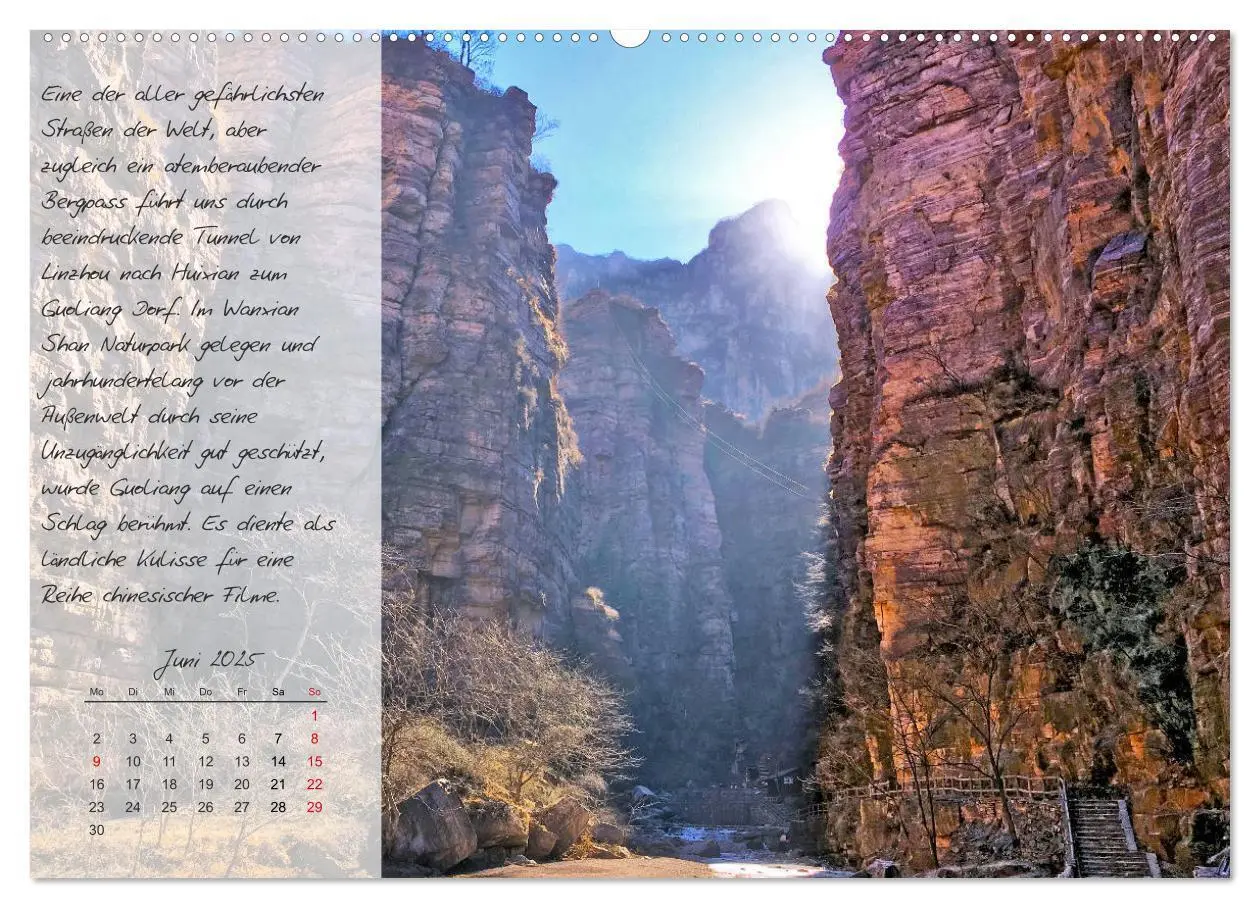 Eine der aller gefährlichsten
Straßen der Welt, aber
zugleich ein atemberaubender
Bergpass führt uns durch
beeindruckende Tunnel von
Linzhou nach Huixian zum
Guoliang Dorf. Im Wanxian
Shan Naturpark gelegen und
jahrhundertelang vor der
Außenwelt durch seine
Unzugänglichkeit gut geschützt,
wurde Guoliang auf einen
Schlag berühmt. Es diente als
ländliche Kulisse für eine
Reihe chinesischer Filme.
Juni 2025
Mo Di Mi Do Fr Sa So
1
2 3 4 5 6 7 8
9 10 11 12 13 14 15
16 17 18 19 20 21 22
23 24 25 26 27 28 29
30